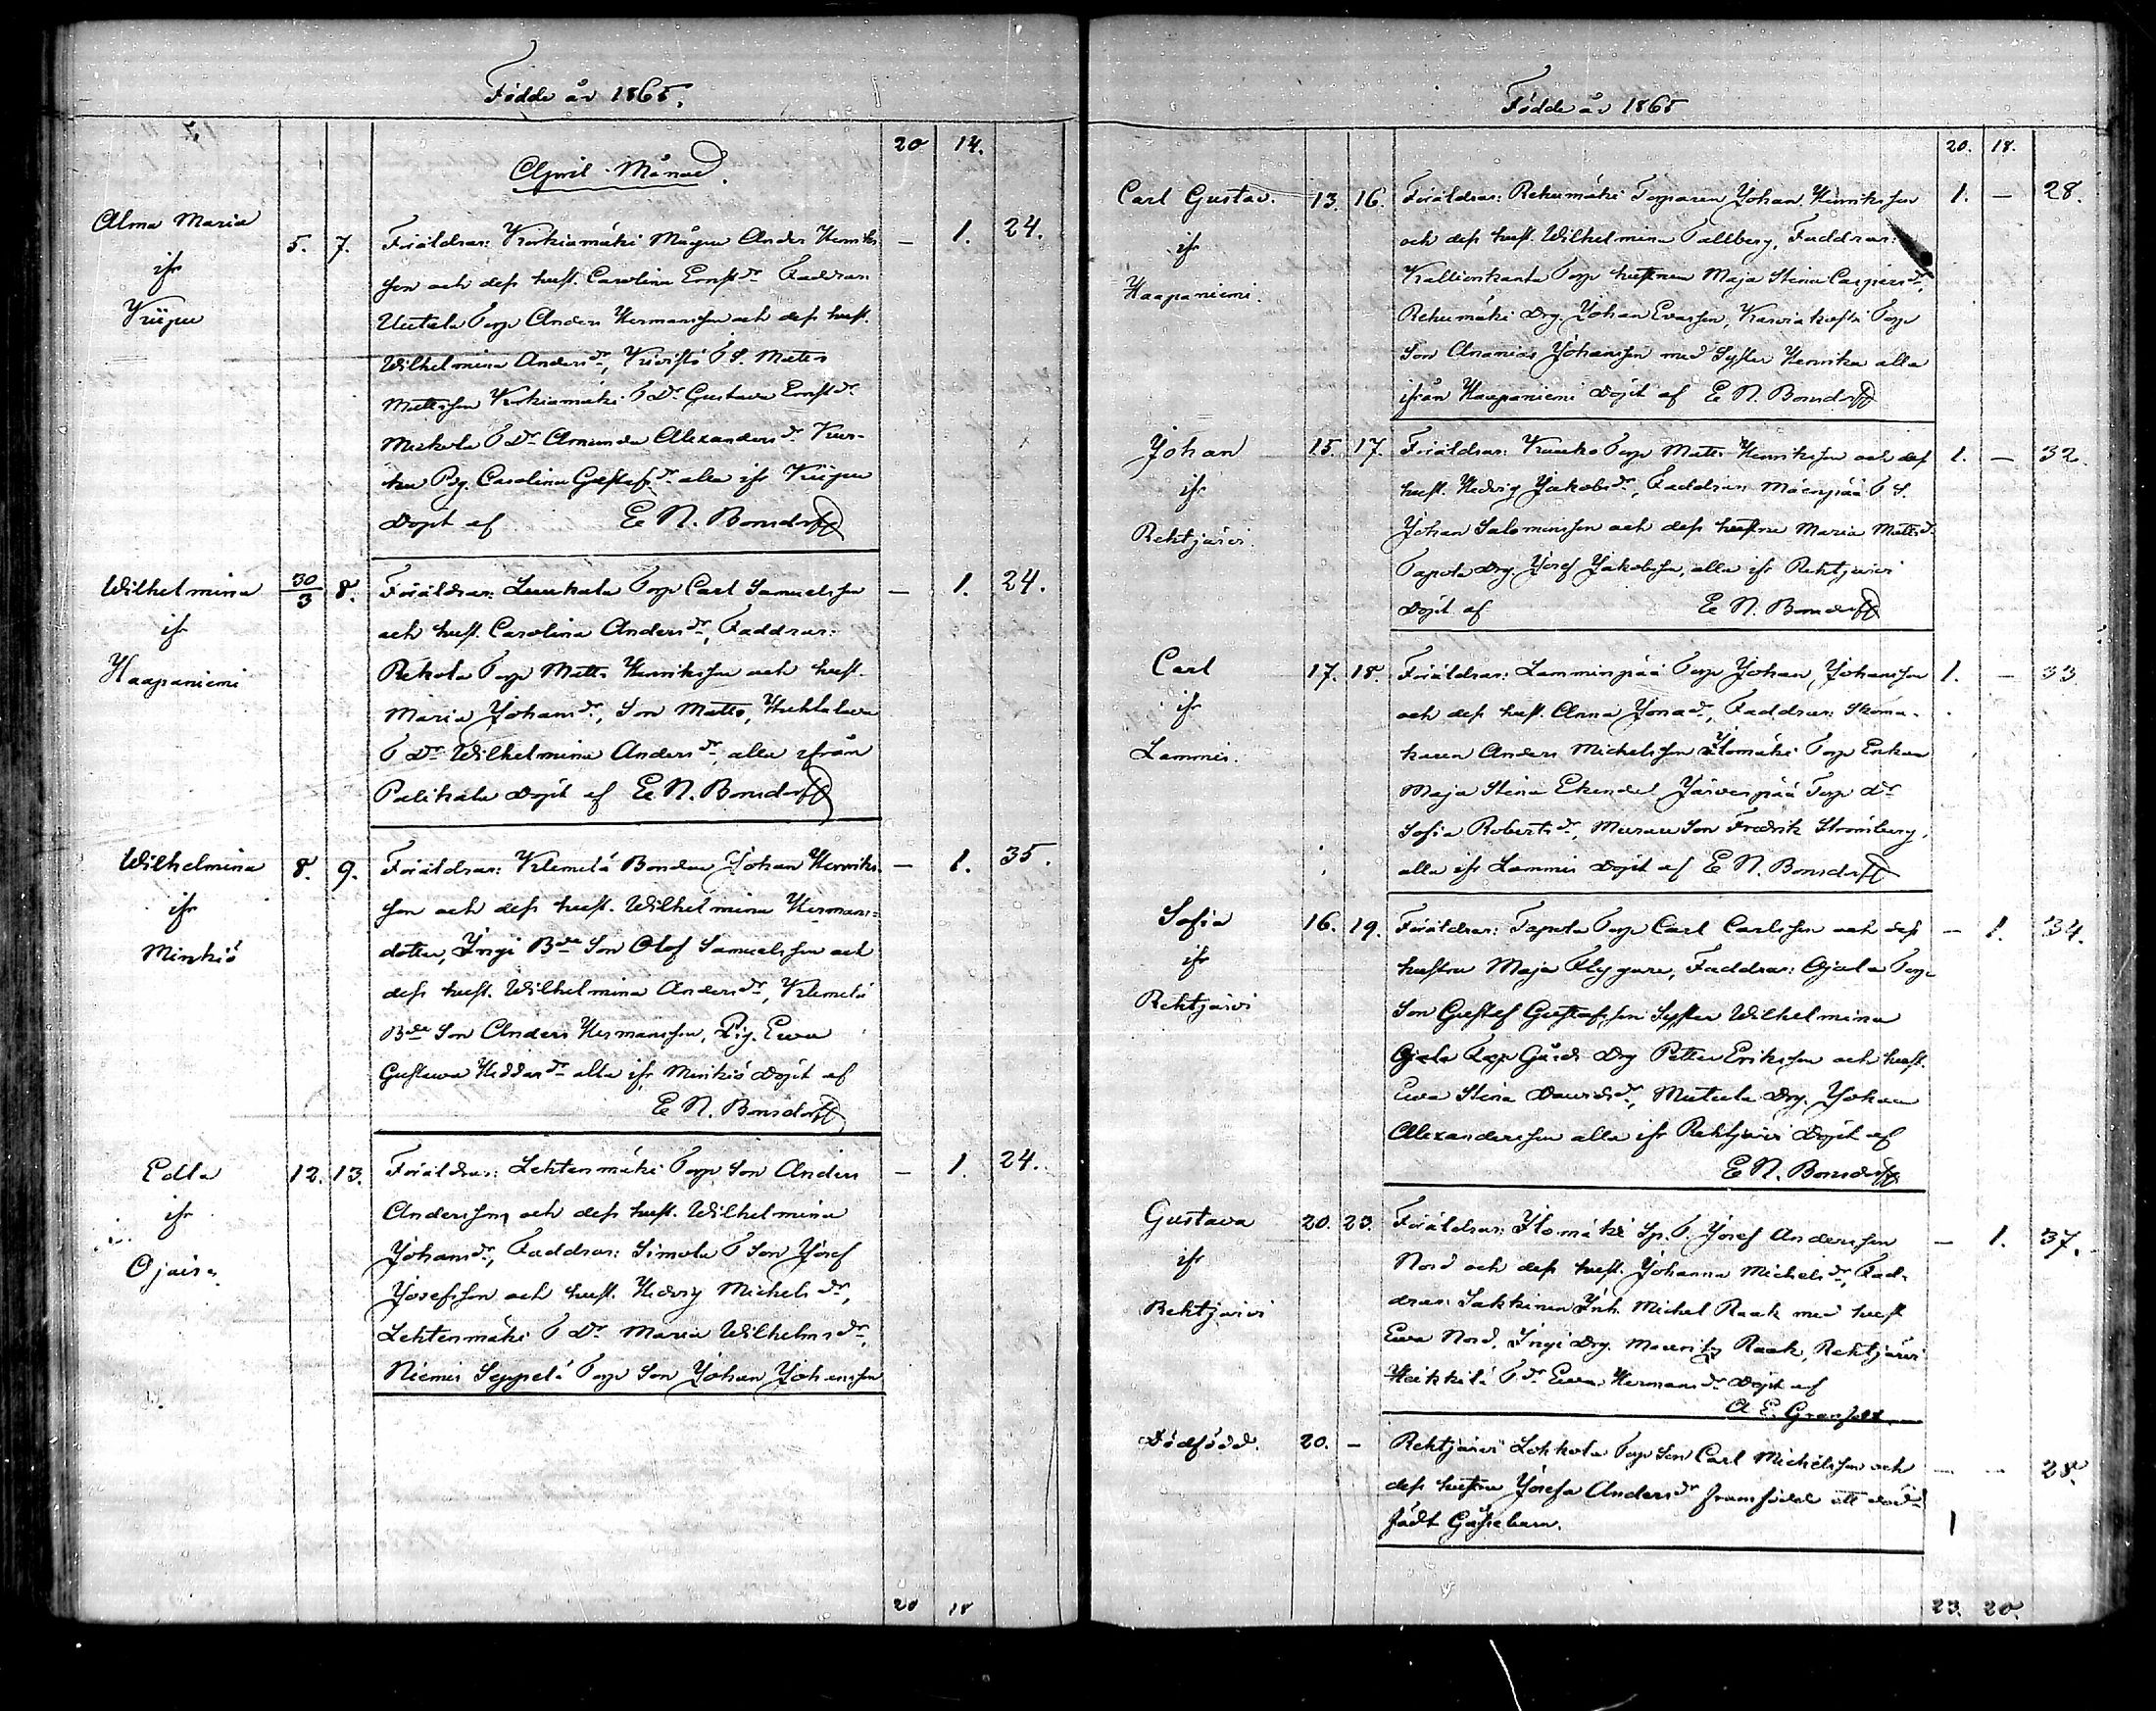 Födde år 1865.
20 14.
April Månad.
Alma Maria
ifr
Kuipu
5. 7. Föräldrar: Korkiamäki Mågen Anders Henriks
son och dess hust. Carolina Ernst dr Faddrar:
Uutala Torp Anders Hermansson och dess hust.
Wilhelmina Anders dr, Kivistö T S. Matts
Mattsson Korkiamäki T Dr Gustava Ernst dr
Mickola T Dr Amanda Alexanders dr
Pig. Carolina Gustafs dr alla ifr Kuipu
Döpt af E N. Bonsdorff
— 1. 24.
Wilhelmina
ifr
Haapaniemi
30/3 8. Föräldrar: Luukala Torp Carl Samuelsson
och hust. Carolina Anders dr, Faddrar:
Rekola Torp Matts Henriksson och hust.
Maria Johans dr, Son Matts,
T Dr Wilhelmina Anders dr, alla ifrån
Palikala Döpt af E N. Bonsdorff
— 1. 24.
Wilhelmina
ifr
Minkiö
8. 9. Föräldrar: Klemelä Bonden Johan Henriks
son och dess hust. Wilhelmina Hermans=
dotter, Ingi Bde Son Olof Samuelsson och
dess hust. Wilhelmina Anders dr, Klemelä
Bde Son Anders Hermansson, Pig. Ewa
Gustawa alla ifr Minkiö Döpt af
E N. Bonsdorff
— 1. 35.
Edla
ifr
Ojais
12. 13. Föräldrar: Lehtenmäki Torp Son Anders
Andersson och dess hust. Wilhelmina
Johans dr, Faddrar: Simola T Son Josef
Josefsson och hust. Hedvig Michels dr,
Lehtenmäki T Dr Maria Wilhelms dr,
Niemis Seppelä Torp Son Johan Johansson
— 1. 24.
20 18
Födde år 1865
20. 18.
Carl Gustav.
ifr
Haapaniemi.
13. 16. Föräldrar: Rekumäki Torparen Johan Henriksson
och dess hust. Wilhelmina Tallberg, Faddrar:
Kallionkanta Torp hustrun Maja Stina Caspers dr,
Rekumäki Drg. Johan Evasson, Torp
Son Ananias Johansson med Syster Henrika alla
ifrån Haapaniemi Döpt af E N. Bonsdorff
1. — 28.
Johan
ifr
Rehtjärvi.
15. 17. Föräldrar: Kuuko Torp Matts Henriksson och dess
hust. Hedvig Jakobs dr, Faddrar: Mäenpää T S.
Johan Salomonsson och dess hustru Maria Matts dr
Tapola Drg. Josef Jakobsson, alla ifr Rehtjärvi
Döpt af E N. Bonsdorff
1. — 32.
Carl
ifr
Lammis.
17. 18. Föräldrar: Lamminpää Torp Johan Johansson
och dess hust. Anna Jona dr, Faddrar: Skoma-
karen Anders Michelsson Ilomäki Torp Enkan
Maja Stina Ekendal Järvenpää Torp Dr
Sofia Roberts dr, Muran Son Fredrik Strömberg,
alla ifr Lammis Döpt af E N. Bonsdorff
1. — 33
Sofia
ifr
Rehtjärvi
16. 19. Föräldrar: Tapola Torp Carl Carlsson och dess
hustru Maja Flygare, Faddrar: Ojala Torp
Son Gustaf Gustafsson Syster Wilhelmina
Ojala Torp Gårds Drg Petter Eriksson och hust.
Ewa Stina Davids dr, Drg. Johan
Alexandersson alla ifr Rehtjärvi Döpt af
E N. Bonsdorff
— 1. 34.
Gustava
ifr
Rehtjärvi
20. 23. Föräldrar: Ilomäki Sp. T. Josef Andersson
Nord och dess hust. Johanna Michels dr, Fad-
drar: Sakkinen Inh. Michel Raak med hust
Ewa Nord, Ingi Drg. Mauritz Raak, Rehtjärvi
Heikkilä T dr Ewa Hermans dr Döpt af
A E. Granfelt
— 1. 37.
Dödfödd.
20. — Rehtjärvi Lokkola Torp Son Carl Michelsson och
dess hustru Josefa Anders dr framfödde ett död=
födt Gossebarn.
— — 28.
1
23. 20.